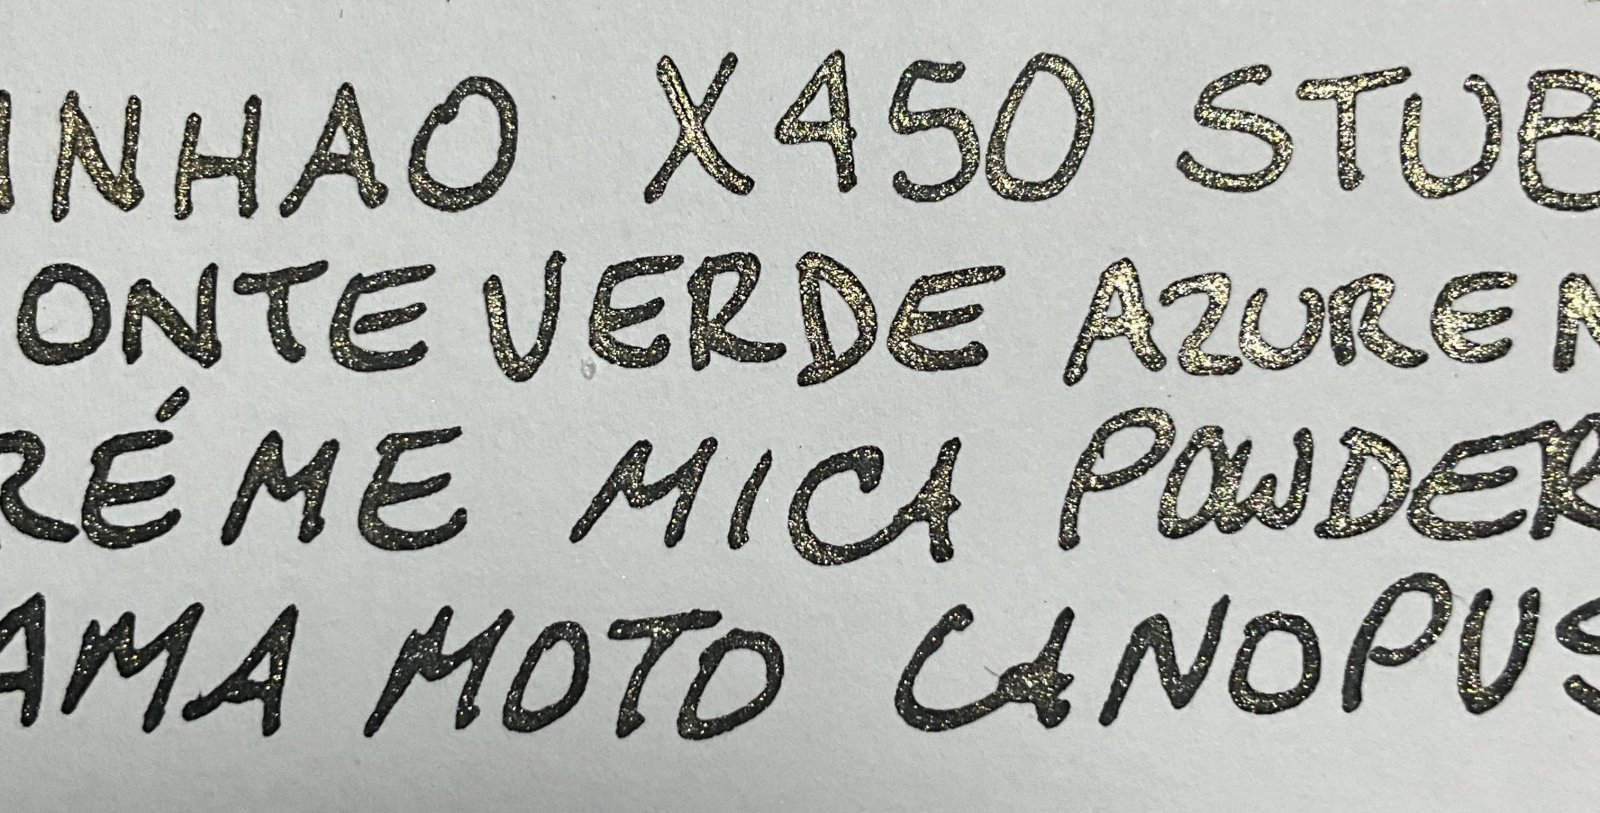 INHAO X450 STUB
ONTEVERDE AZURE N
RÉME MICA POWDER
AMA MOTO CANOPUS